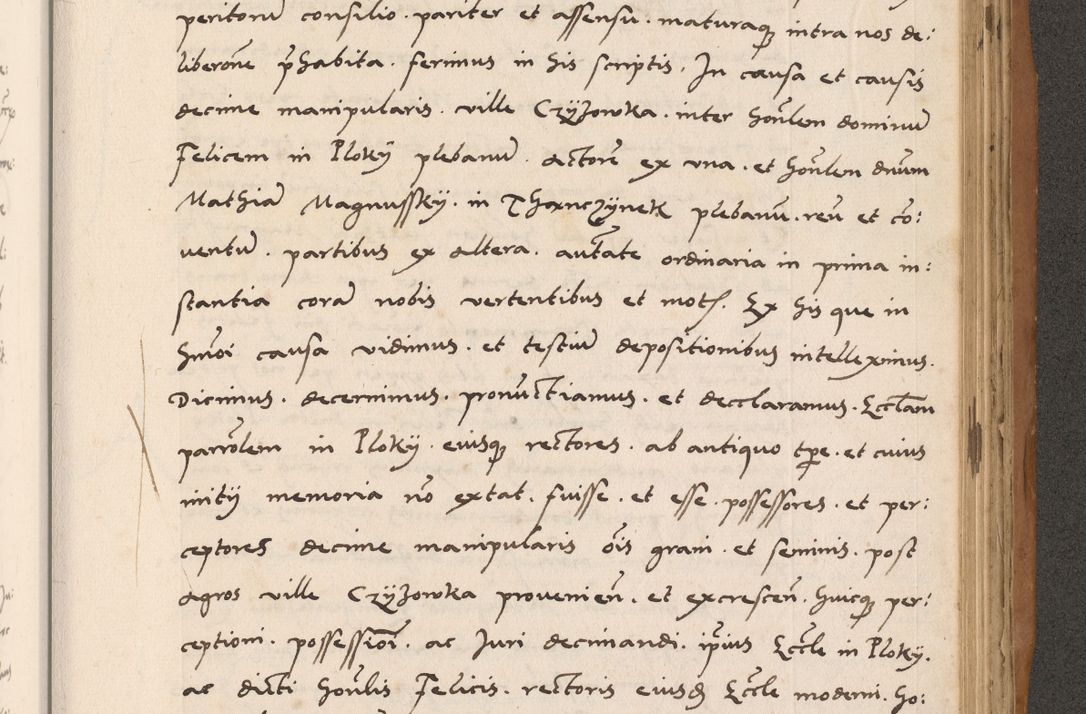 peritorū consilio . pariter et assensu . maturaq; intra nos de:
liberōne p̄habita . ferimus in his scriptis . In causa et causis
decime manipularis . ville Czÿzowka . inter hon̄lem dominū
Felicem in Plokÿ plebanū . actorē ex vna . et honūlem dnūm
Mathiā Magnusskÿ . in Tharnczÿnek plebanū . reū et cō:
ventū . partibus ex altera . auc̄tate ordinaria in prima in:
stantia corā nobis vertentibus et mot. Ex his que in
hmōi causa vidimus . et testiū depositionibus intelleximus .
Dicimus . decernimus . pronūctiamus . et decclaramus . Ecclām
parrōlem in Plokÿ . eiusq; rectores . ab antiquo tp̄e . et cuius
initÿ memoria nō extat . fuisse . et esse . possessores . et per:
ceptores decime manipularis ōis grani . et seminis . post
agros ville Czÿzowka provenien̄ . et excrescen̄ . huicq; per:
ceptioni . possessiōi . ac Juri decimandi . ip̄ius Eccl̄e in Plokÿ .
ac dicti honūlis Felicis . rectoris eiusd̄ Eccl̄e moderni . ho: